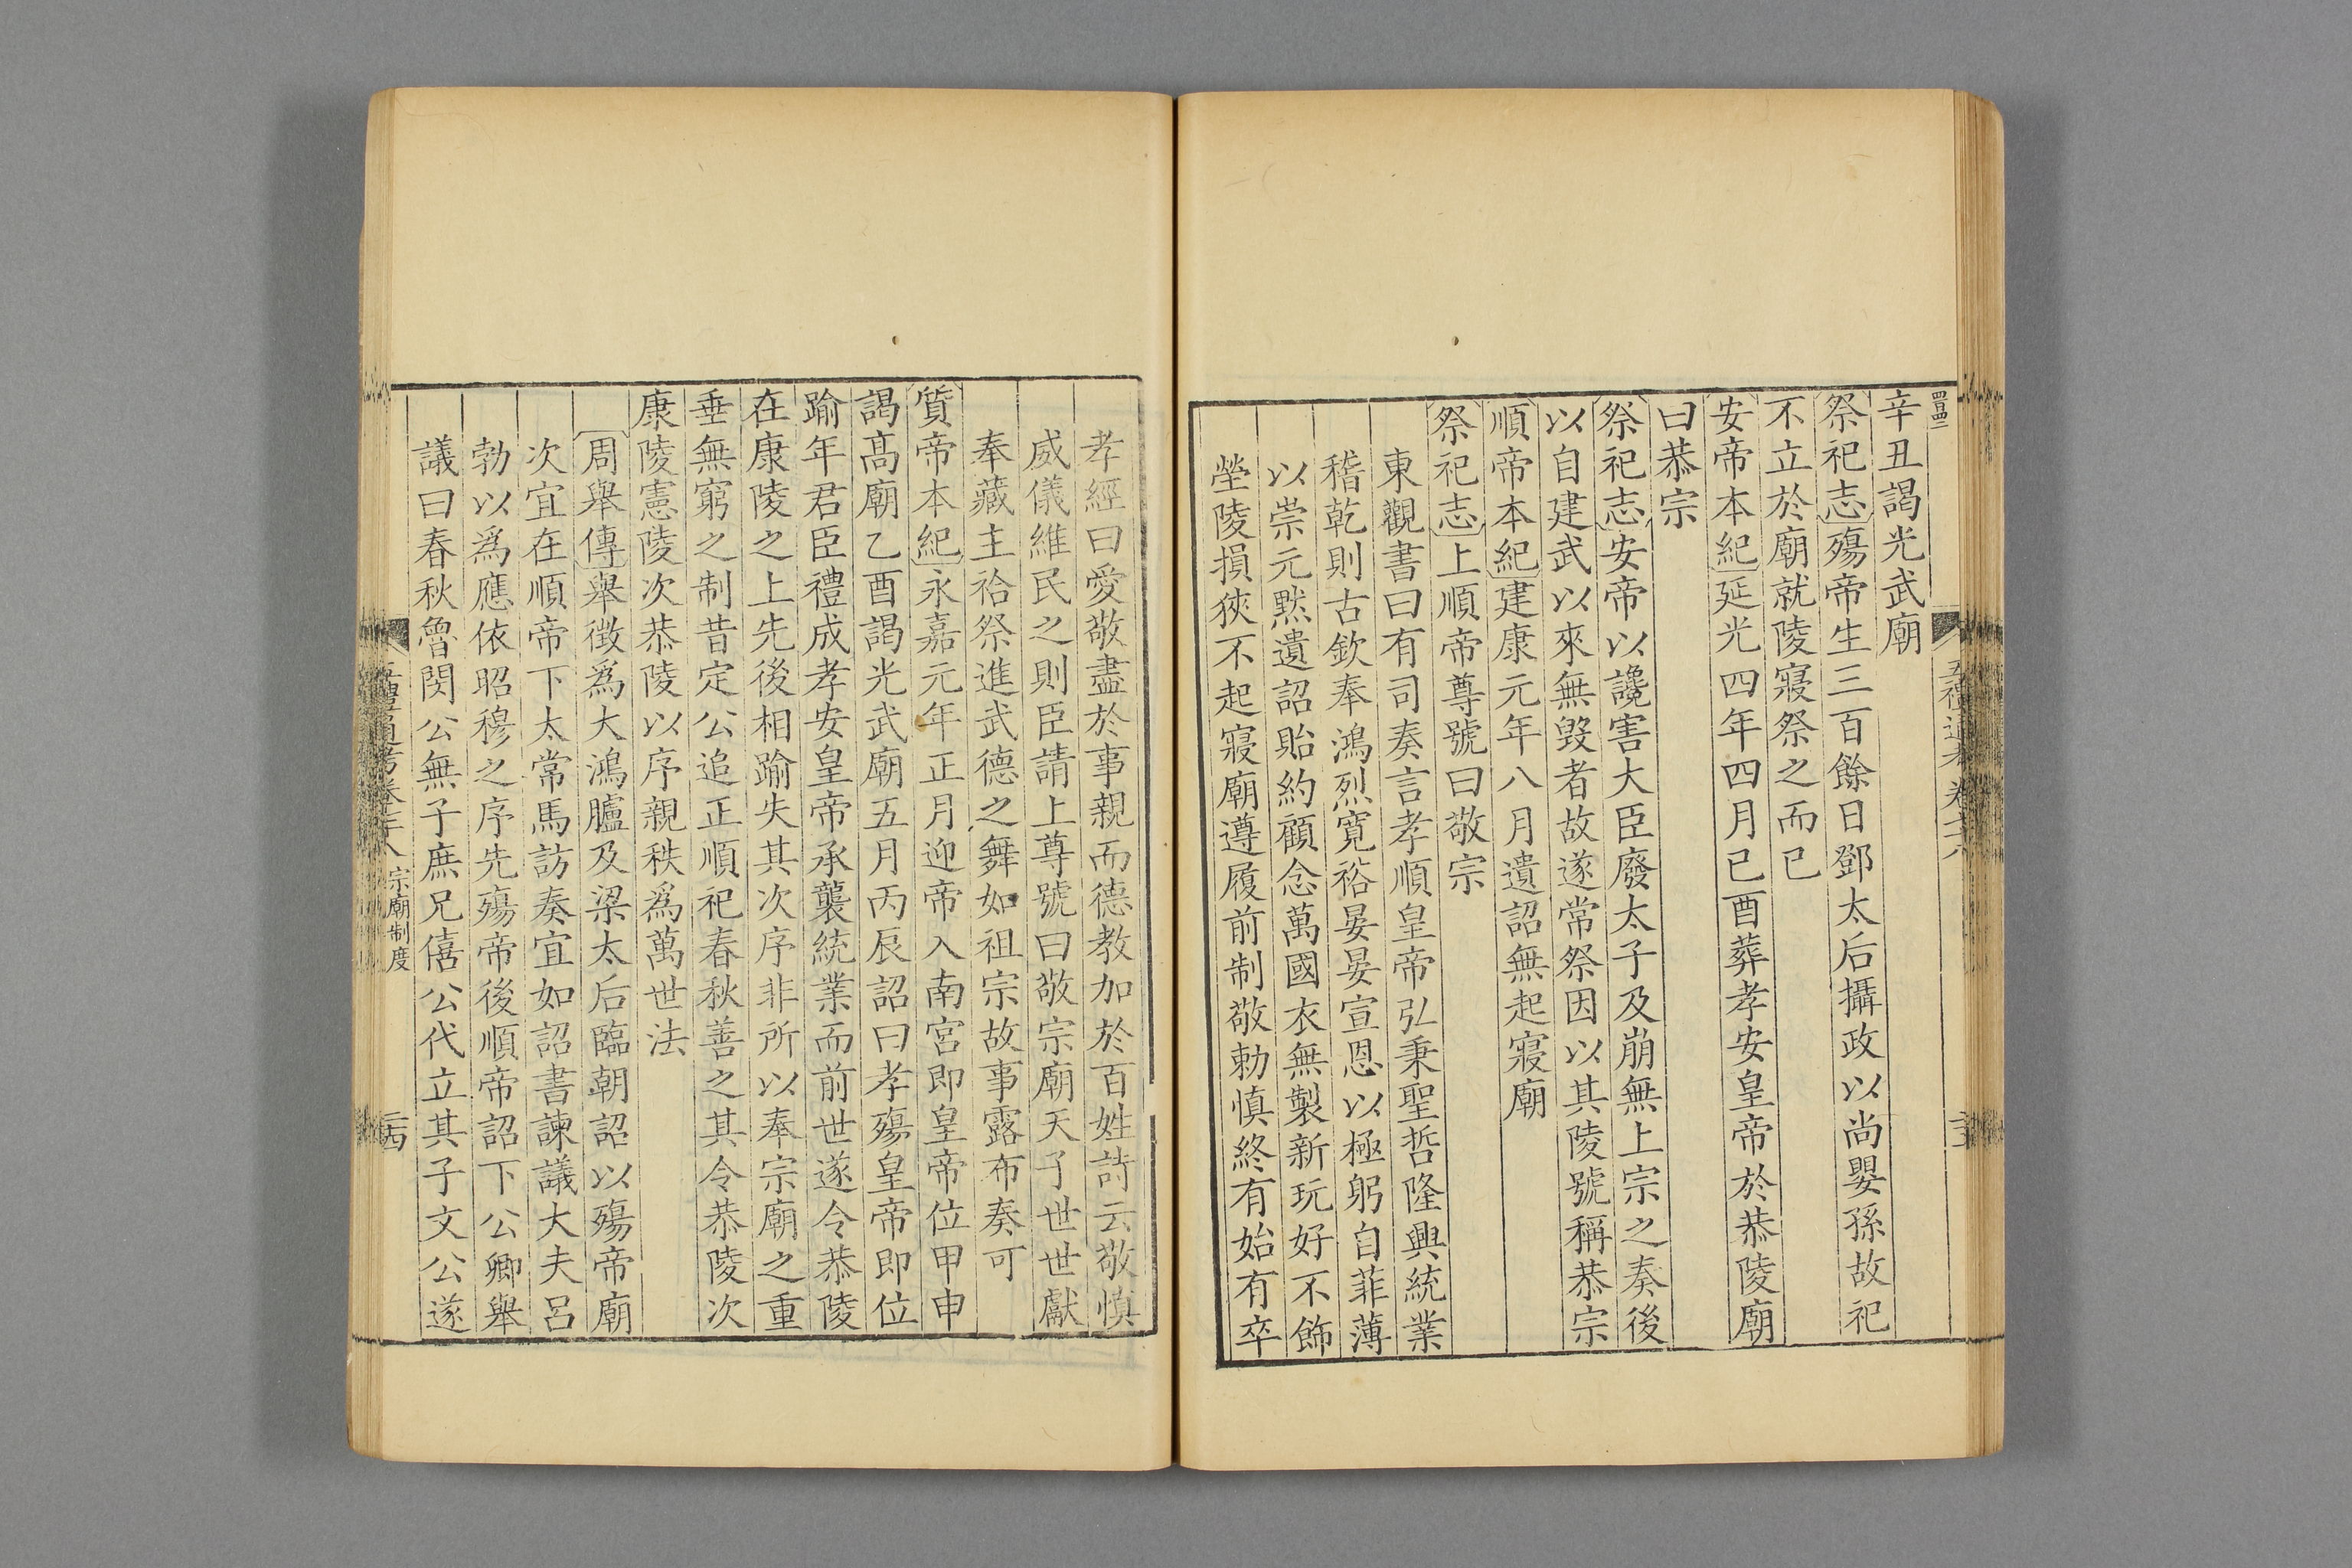 辛丑謁光武廟
祭祀志殤帝生三百餘日鄧太后攝政以尚嬰孫故祀
不立於廟就陵寢祭之而已
安帝本紀延光四年四月已酉葬孝安皇帝於恭陵廟
曰恭宗
祭祀志安帝以讒害大臣廢太子及崩無上宗之奏後
以自建武以來無毀者故遂常祭因以其陵號稱恭宗
順帝本紀建康元年八月遺詔無起寢廟
祭祀志上順帝尊號曰敬宗
東觀書曰有司奏言孝順皇帝弘秉聖哲隆興統業
稽乾則古欽奉鴻烈寬裕晏晏宣恩以極躬自菲薄
以崇元默遺詔貽約顧念萬國衣無製新玩好不飾
塋陵損狹不起寢廟遵履前制敬勅慎終有始有卒
孝經曰愛敬盡於事親而德教加於百姓詩云敬慎
威儀維民之則臣請上尊號曰敬宗廟天子世世獻
奉藏主祫祭進武德之舞如祖宗故事露布奏可
質帝本紀永嘉元年正月迎帝入南宮即皇帝位甲申
謁高廟乙酉謁光武廟五月丙辰詔曰孝殤皇帝即位
踰年君臣禮成孝安皇帝承襲統業而前世遂令恭陵
在康陵之上先後相踰失其次序非所以奉宗廟之重
垂無窮之制昔定公追正順祀春秋善之其令恭陵次
康陵憲陵次恭陵以序親秩爲萬世法
周舉傳舉徵爲大鴻臚及梁太后臨朝詔以殤帝廟
次宜在順帝下太常馬訪奏宜如詔書諫議大夫呂
勃以爲應依昭穆之序先殤帝後順帝詔下公卿舉
議曰春秋魯閔公無子庶兄僖公代立其子文公遂
五禮通考卷 宗廟制度